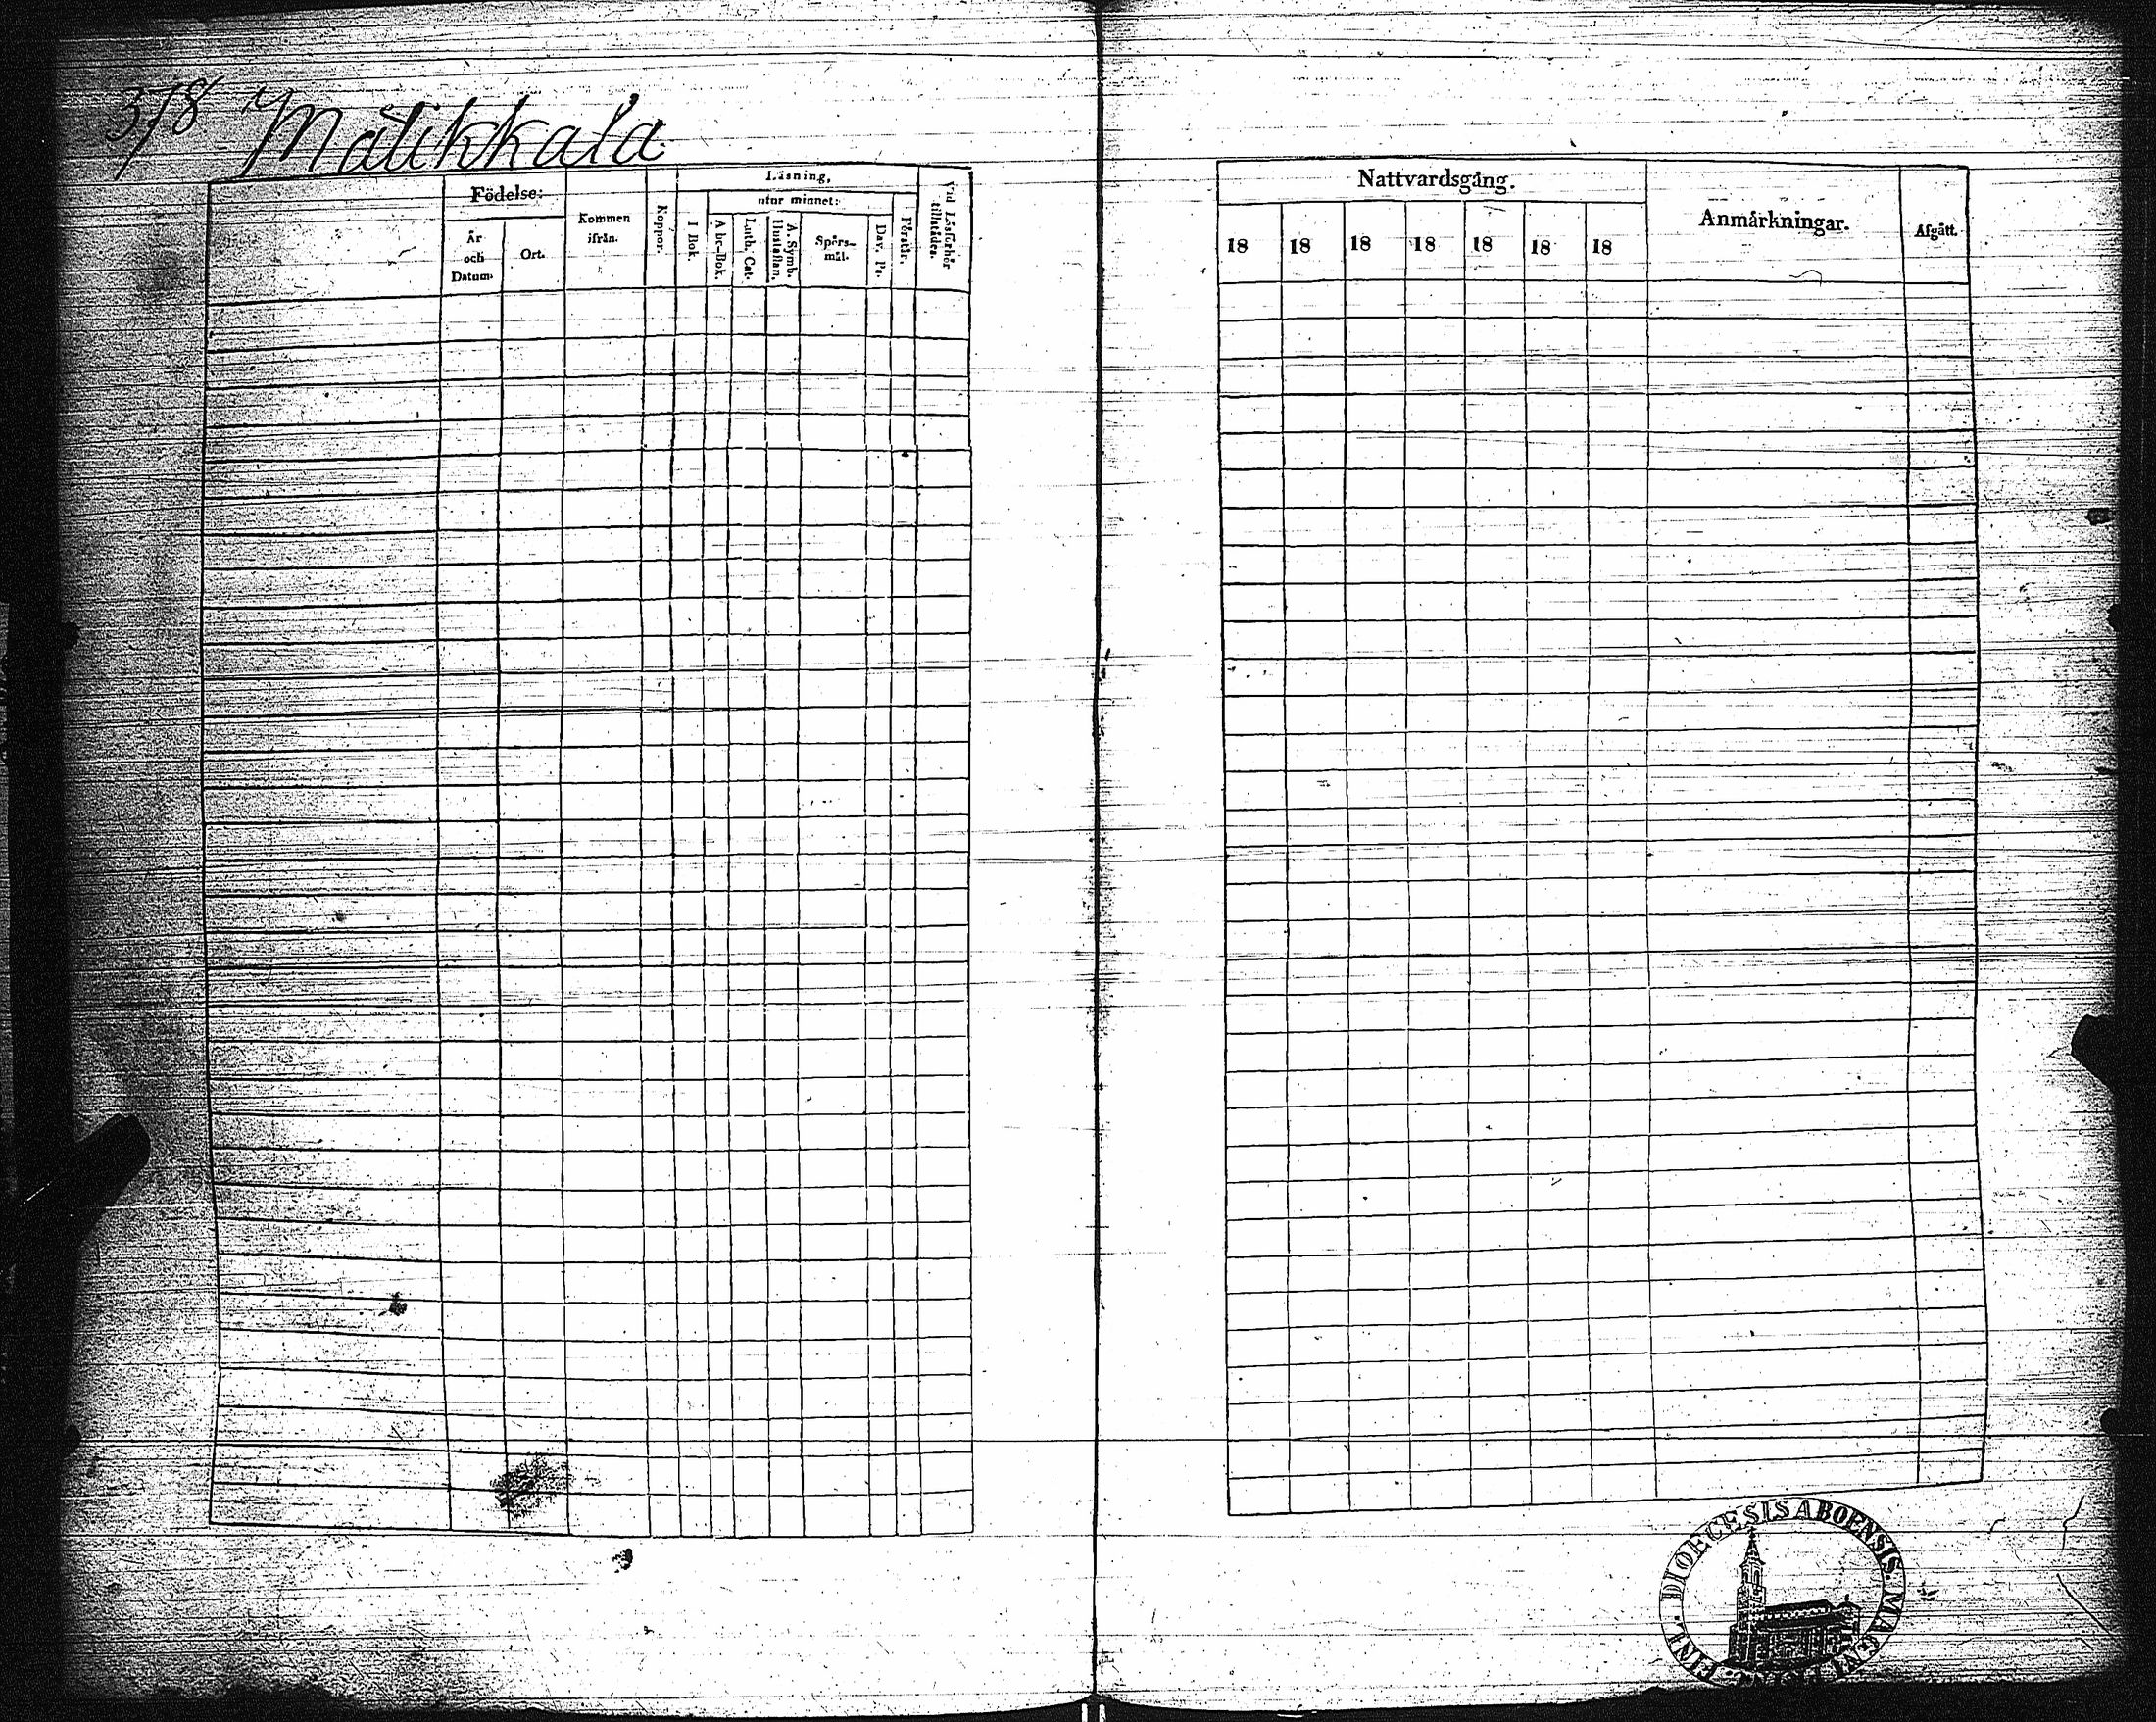 378 Mälikkälä
Födelse:
År och Datum.
Ort.
Kommen ifrån.
Koppor.
Läsning,
utur minnet:
I Bok.
Abc-Bok.
Luth. Cat.
A. Symb. Hustaflan.
Spörs-mål.
Dav. Ps.
Förstår.
Vid Läsförhör tillstädes.
Nattvardsgång.
18 18 18 18 18 18 18
Anmärkningar.
Afgått.
DIOECESIS ABOENSIS. MAGNI
FINL.